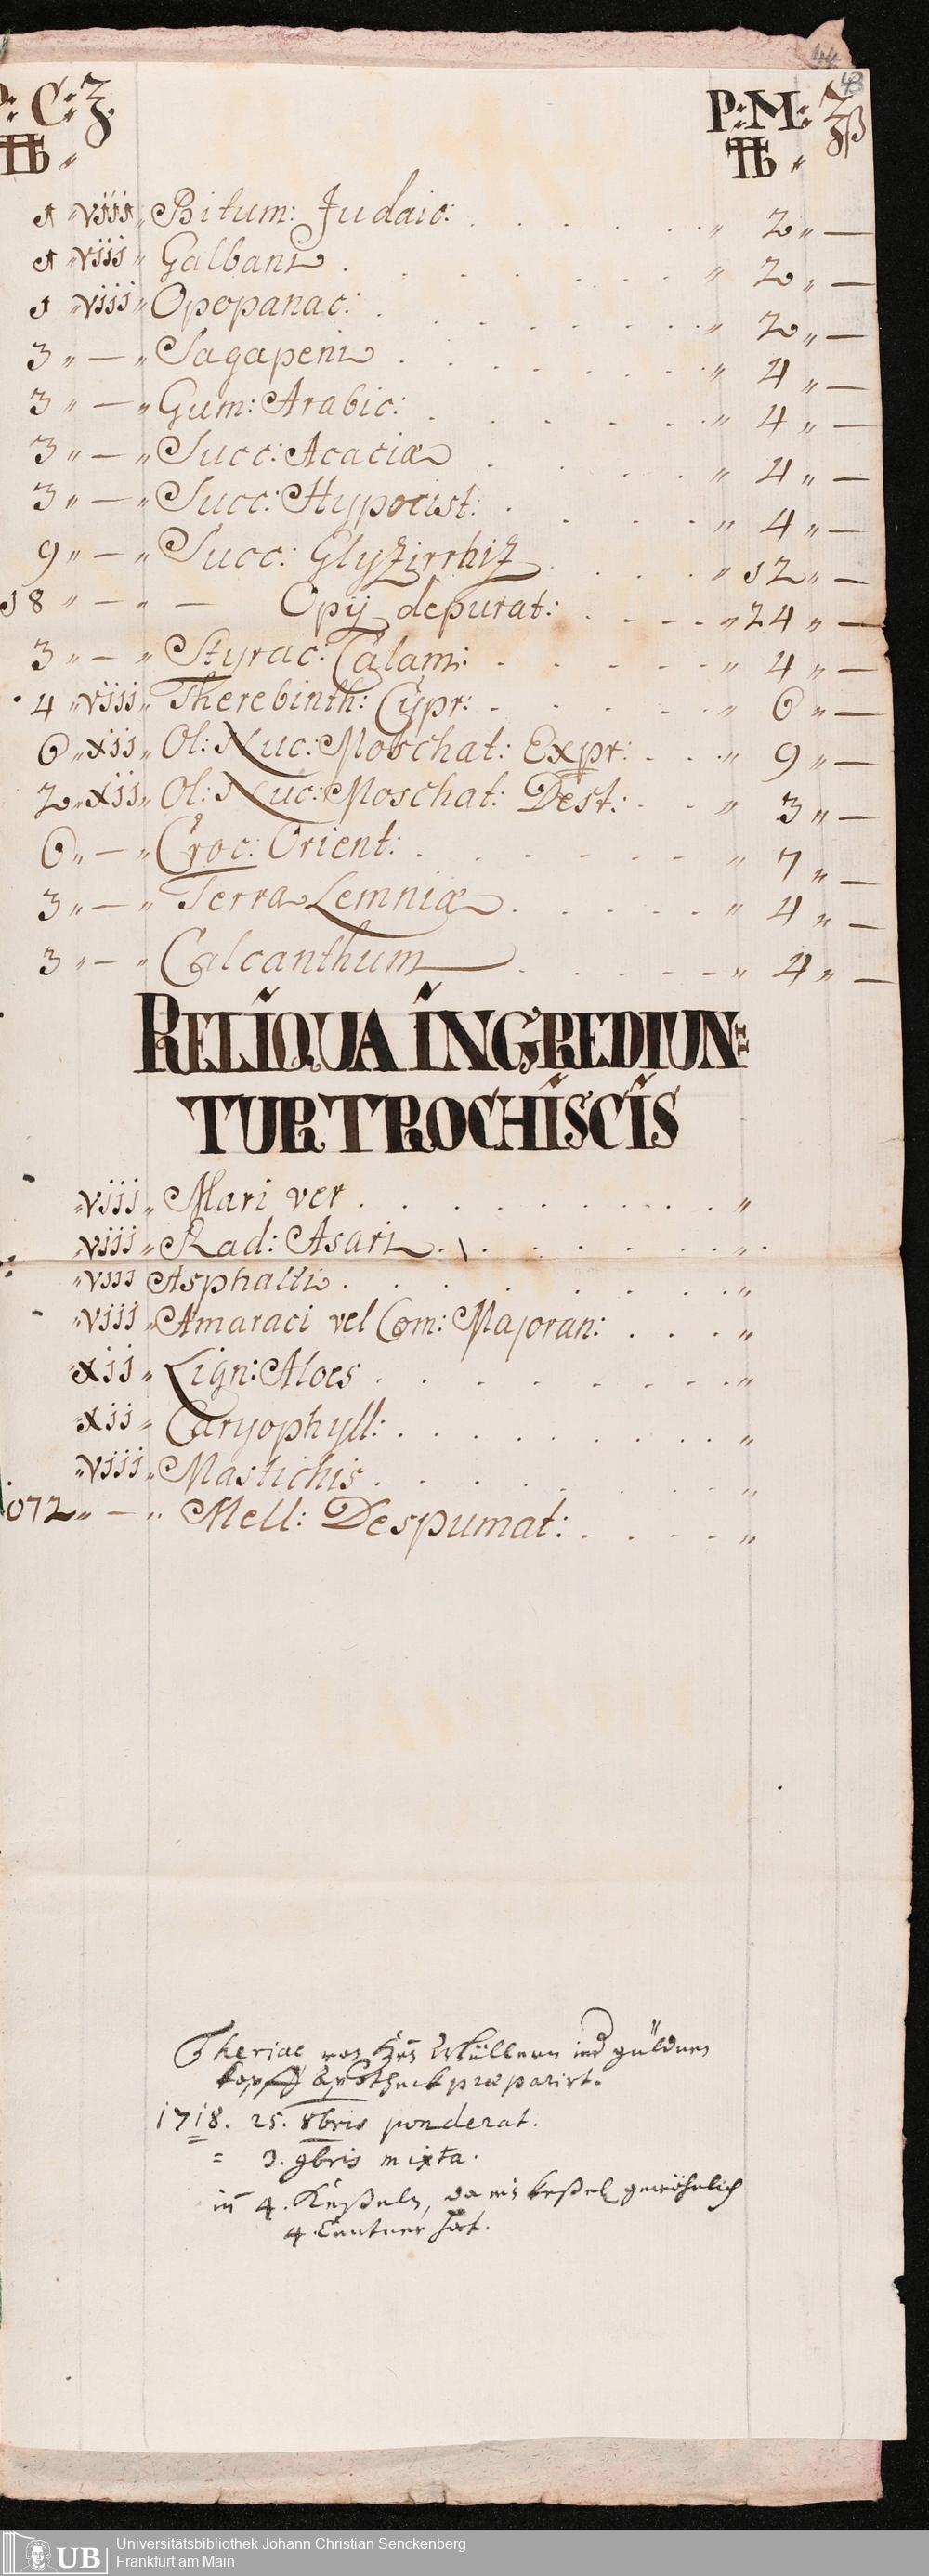 44
43
P: C: ʒ. P: M: ʒß
℔ „ ℔ „
1 „ viii „ Bitum: Judaic: . . . . . . „ 2 „ —
1 „ viii „ Galbani . . . . . . . „ 2 „ —
1 „ viii „ Opopanac: . . . . . . . „ 2 „ —
3 „ — „ Sagapeni . . . . . . . „ 4 „ —
3 „ — „ Gum: Arabic: . . . . . . „ 4 „ —
3 „ — „ Succ: Acaciæ . . . „ 4 „ —
3 „ — „ Succ: Hypocist: . . . . „ 4 „ —
9 „ — „ Succ: Glyzirrhiz . . . . „ 12 „ —
18 „ — „ — Opij depurat: . . . . „ 24 „ —
3 „ — „ Styrac: Calam: . . . . . „ 4 „ —
4 „ viii „ Therebinth: Cypr: . . . . . „ 6 „ —
6 „ xii „ Ol: Nuc: Moschat: Expr: . . . „ 9 „ —
2 „ xii „ Ol: Nuc: Moschat: Dest: . . . „ 3 „ —
6 „ — „ Croc: Orient: . . . . . . „ 7 „ —
3 „ — „ Terra Lemniæ . . . . . „ 4 „ —
3 „ — „ Calcanthum . . . . . „ 4 „ —
RELIQUA INGREDIUN:
TUR TROCHISCIS
„ viii „ Mari ver . . . . . . . . . „
„ viii „ Rad: Asari . . . . . . . . „
„ viii Asphalti . . . . . . . . „
„ viii „ Amaraci vel Com: Majoran: . . . „
„ xii „ Lign: Aloes . . . . . . . . „
„ xii „ Caryophyll: . . . . . . . . „
„ viii „ Mastichis . . . . . . . „
072 „ — „ Mell: Despumat: . . . . „
Theriac von Hrn Müllern in güldnen
Kopff Apotheck præparirt.
1718. 25. 8bris ponderat.
= 3. 9bris mixta.
in 4. Keßeln, da ein keßel gewöhnlich
4. Centner hat.
UB
Universitätsbibliothek Johann Christian Senckenberg
Frankfurt am Main